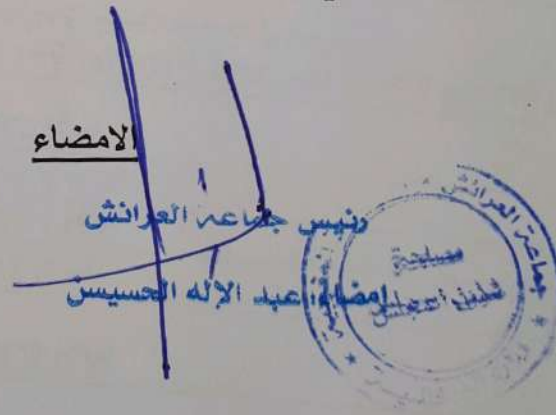 الامضاء
رئيس جماعة العرائش
إمضاء: عبد الإله احسيسن
جماعة العرائش
مصلحة